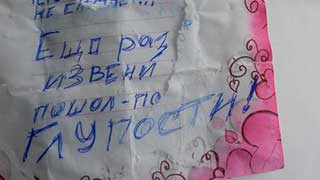 НЕ
Ещо раз
извени
пошол-по
ГЛУПОСТИ!